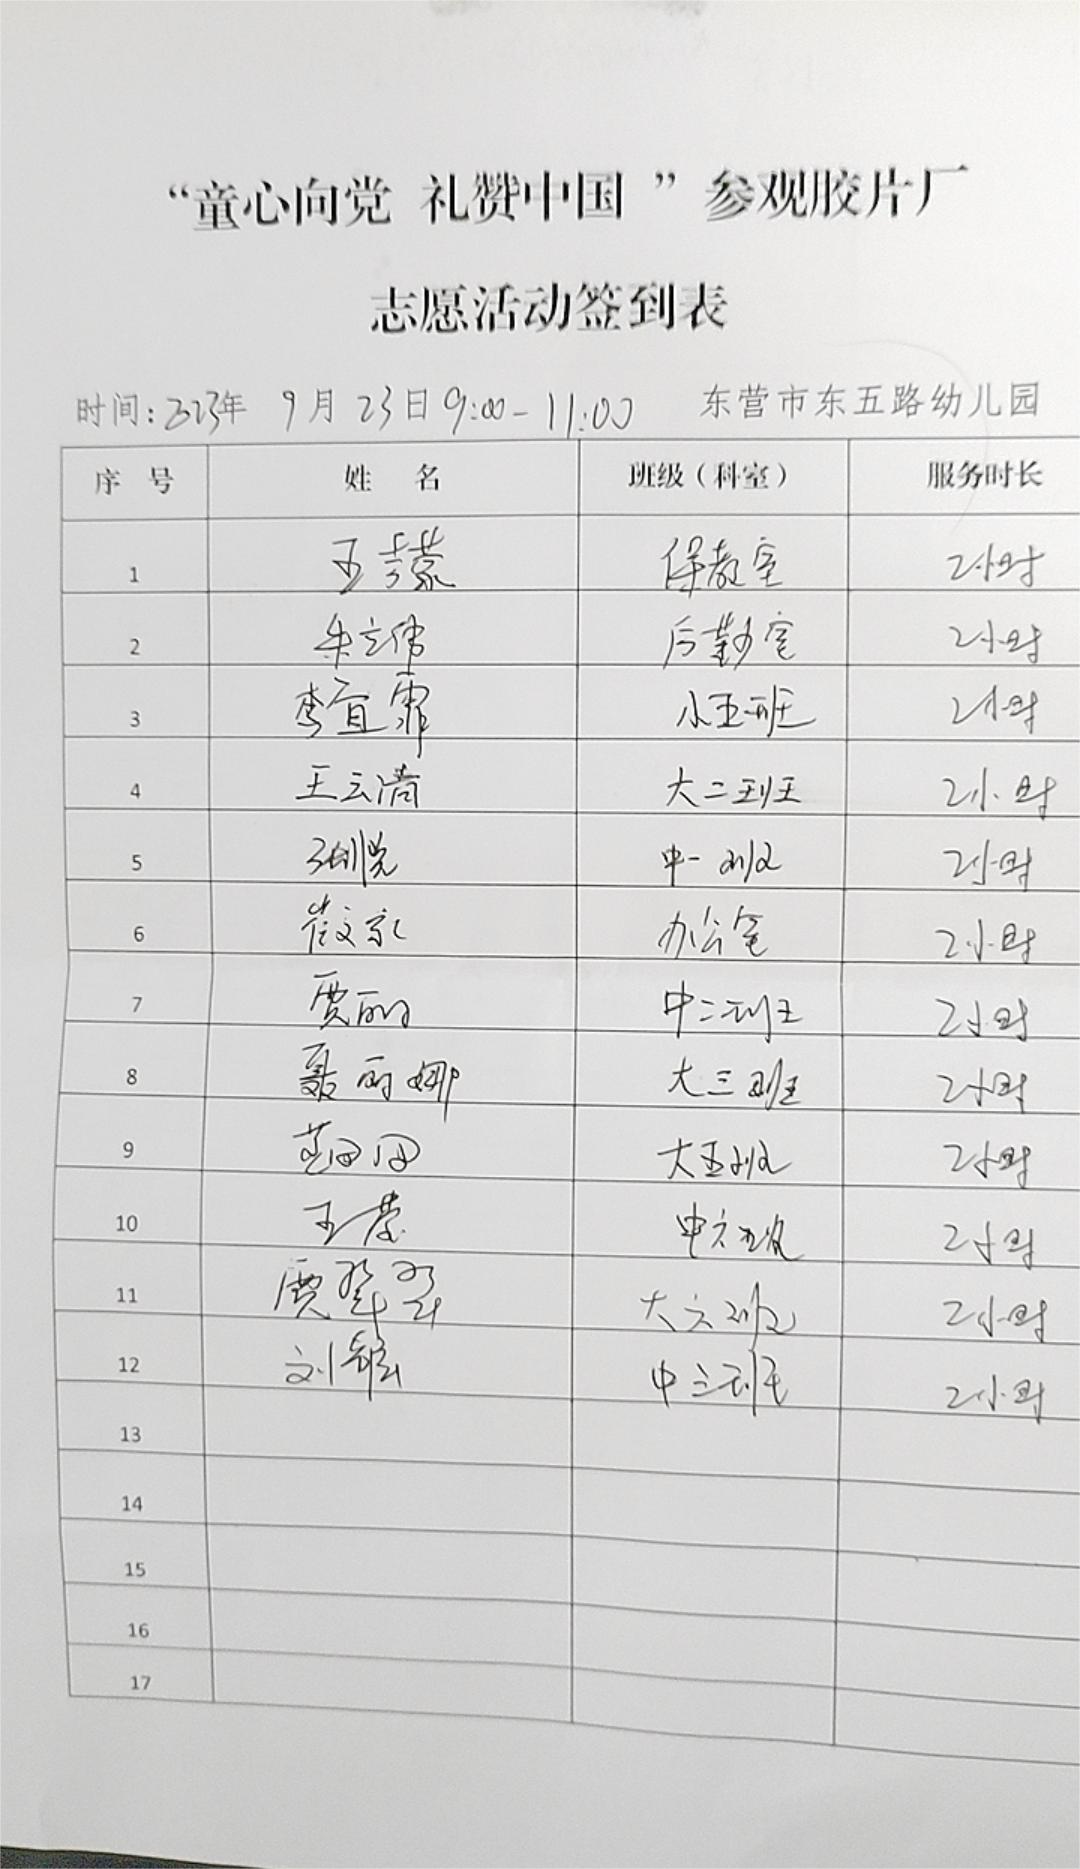 “童心向党 礼赞中国 ”参观胶片厂
志愿活动签到表
时间：2023年 9月23日9:00-11:00 东营市东五路幼儿园
序号 姓名 班级（科室） 服务时长
1 王芳蒙 保教室 2小时
2 朱立伟 后勤室 2小时
3 李宜霏 小五班 2小时
4 王云清 大二班 2小时
5 张悦 中一班 2小时
6 崔文 办公室 2小时
7 贾丽 中二班 2小时
8 聂丽娜 大三班 2小时
9 大五班 2小时
10 王荣 中六班 2小时
11 贾翠翠 大六班 2小时
12 刘 中三班 2小时
13
14
15
16
17